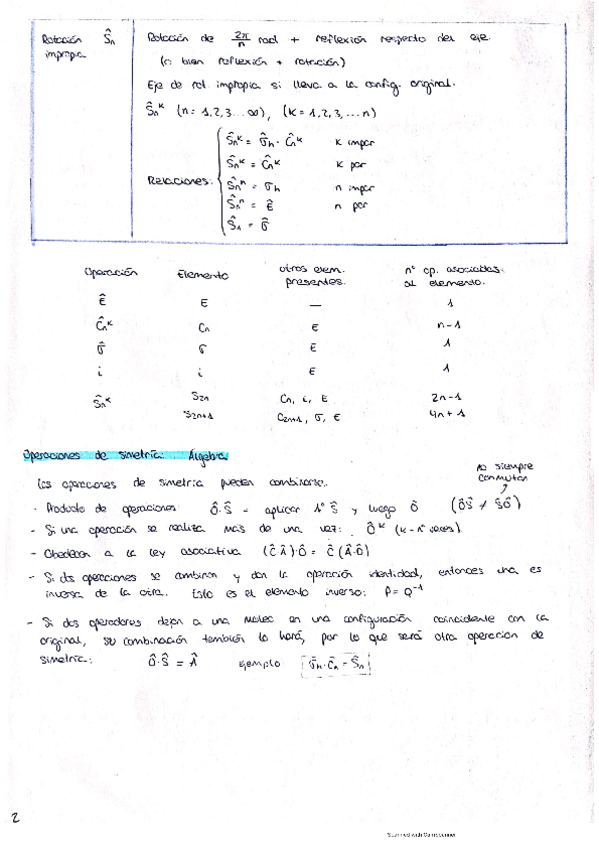 Rotación Ŝn Rotación de 2π/n rad + reflexión respecto del eje.
impropia (o bien reflexión + rotación)
Eje de rot. impropia si lleva a la config. original.
Ŝn^k (n = 1,2,3... ∞), (k = 1,2,3,...n)
Relaciones:
Ŝn^k = σ̂h · Ĉn^k k impar
Ŝn^k = Ĉn^k k par
Ŝn^n = σh n impar
Ŝn^n = Ê n par
Ŝ1 = σ̂
Operación Elemento otros elem. presentes. nº op. asociadas al elemento.
Ê E — 1
Ĉn^k Cn E n-1
σ̂ σ E 1
i i E 1
Ŝn^k S2n Cn, i, E 2n-1
S2n+1 C2n+1, σ, E 4n+1
Operaciones de simetría: Álgebra
no siempre
conmutan
Las operaciones de simetría pueden combinarse.
- Producto de operaciones Ô·Ŝ - aplicar 1º Ŝ y luego Ô (ÔŜ ≠ ŜÔ)
- Si una operación se realiza más de una vez: Ô^k (k-nº veces)
- Obedecen a la ley asociativa (ĈÂ)·Ô = Ĉ(Â·Ô)
- Si dos operaciones se combinan y dan la operación identidad, entonces una es
inversa de la otra. Esto es el elemento inverso: P = Q^-1
- Si dos operadores dejan a una molec en una configuración coincidente con la
original, su combinación también lo hará, por lo que será otra operación de
simetría: Ô·Ŝ = Â ejemplo σ̂h·Ĉn = Ŝn
2
Scanned with CamScanner